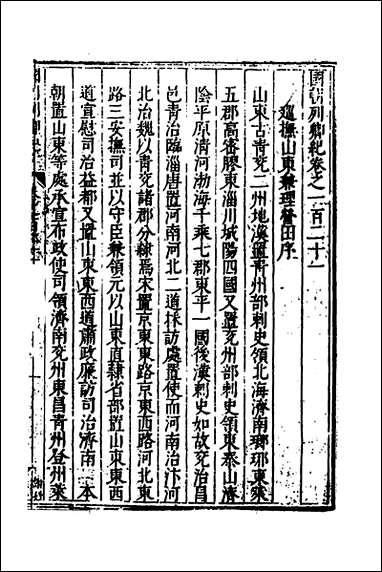 國朝列卿紀卷之一百二十一
巡撫山東兼理營田序
山東古青兗二州地漢置青州部刺史領北海濟南瑯琊東萊
五郡高密膠東淄川城陽四國又置兗州部刺史領東泰山濟
陰平原清河渤海千乘七郡東平一國後漢刺史如故兗治昌
邑青治臨淄唐置河南河北二道採訪處置使而河南治汴河
北治魏以青兗諸郡分隸焉宋置京東東路京東西路河北東
路三安撫司並以守臣兼領元以山東直隸省部置山東東西
道宣慰司治益都又置山東東西道肅政廉訪司治濟南 本
朝置山東等處承宣布政使司領濟南兗州東昌青州登州萊